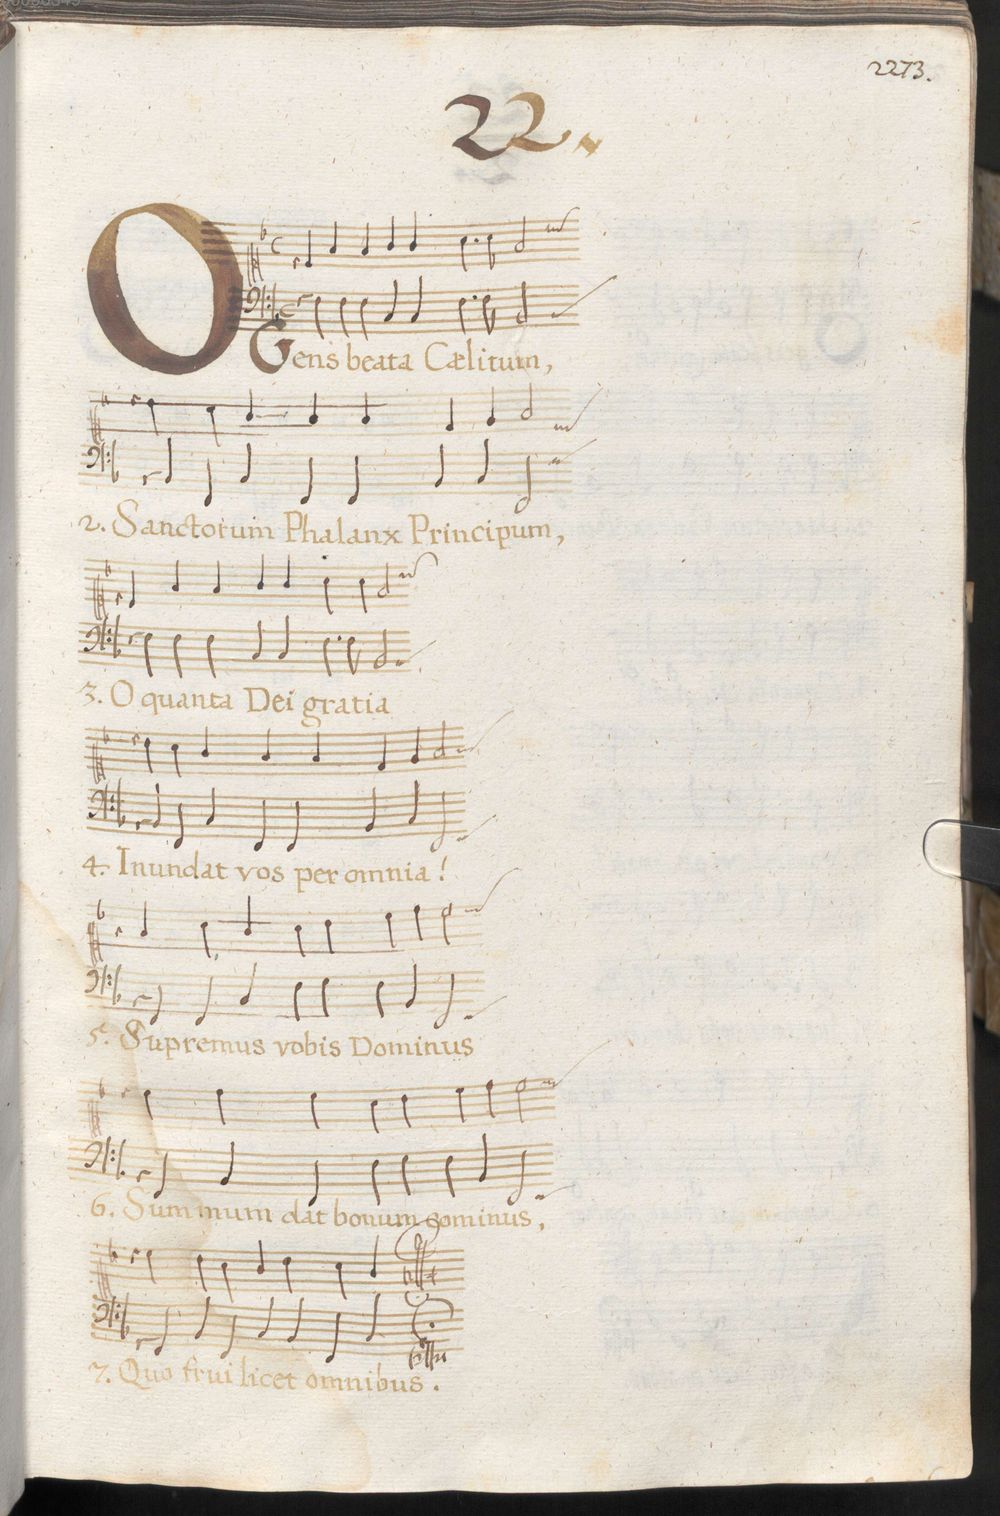 2273.
22.
O
Gens beata Cælitum,
2. Sanctorum Phalanx Principum,
3. O quanta Dei gratia
4. Inundat vos per omnia!
5. Supremus vobis Dominus
6. Summum dat bonum cominus,
7. Quo frui licet omnibus.